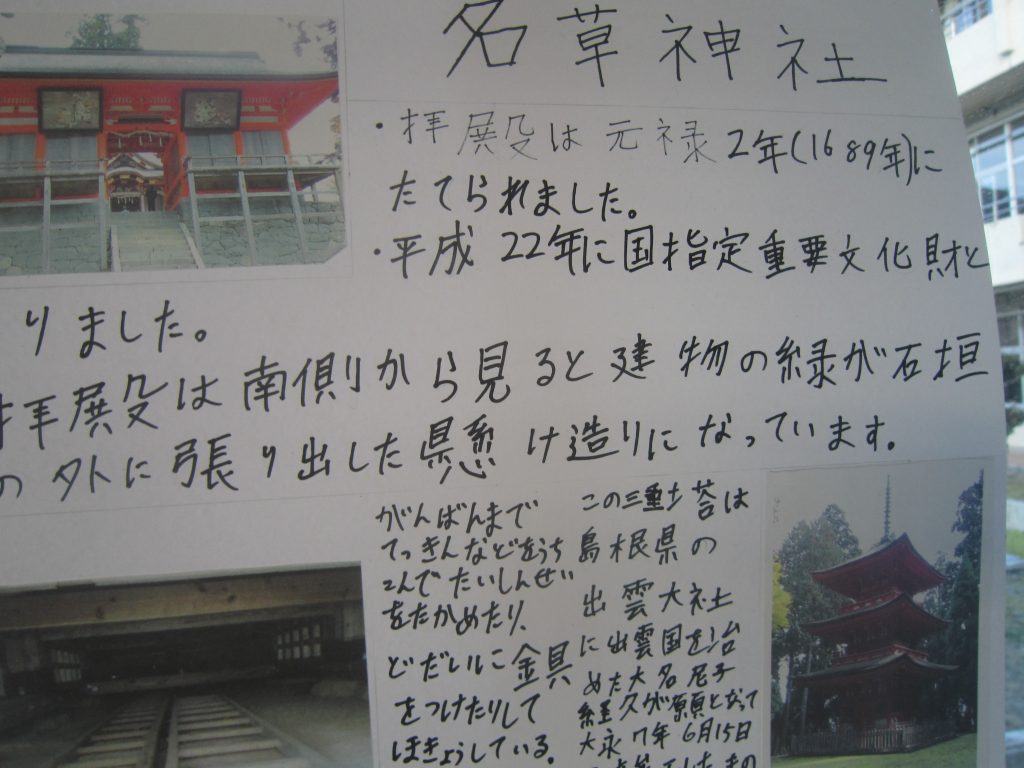 名草神社
・拝殿は元禄2年(1689年)に
たてられました。
・平成22年に国指定重要文化財と
りました。
拝殿は南側から見ると建物の縁が石垣
の外に張り出した懸け造りになっています。
がんばんまで
てっきんなどをうち
こんでたいしんせい
をたかめたり、
どだいに金具
をつけたりして
ほきょうしている。
この三重塔は
島根県の
出雲大社
に出雲国を治
めた大名尼子
経久が願主となって
大永7年6月15日
したもの